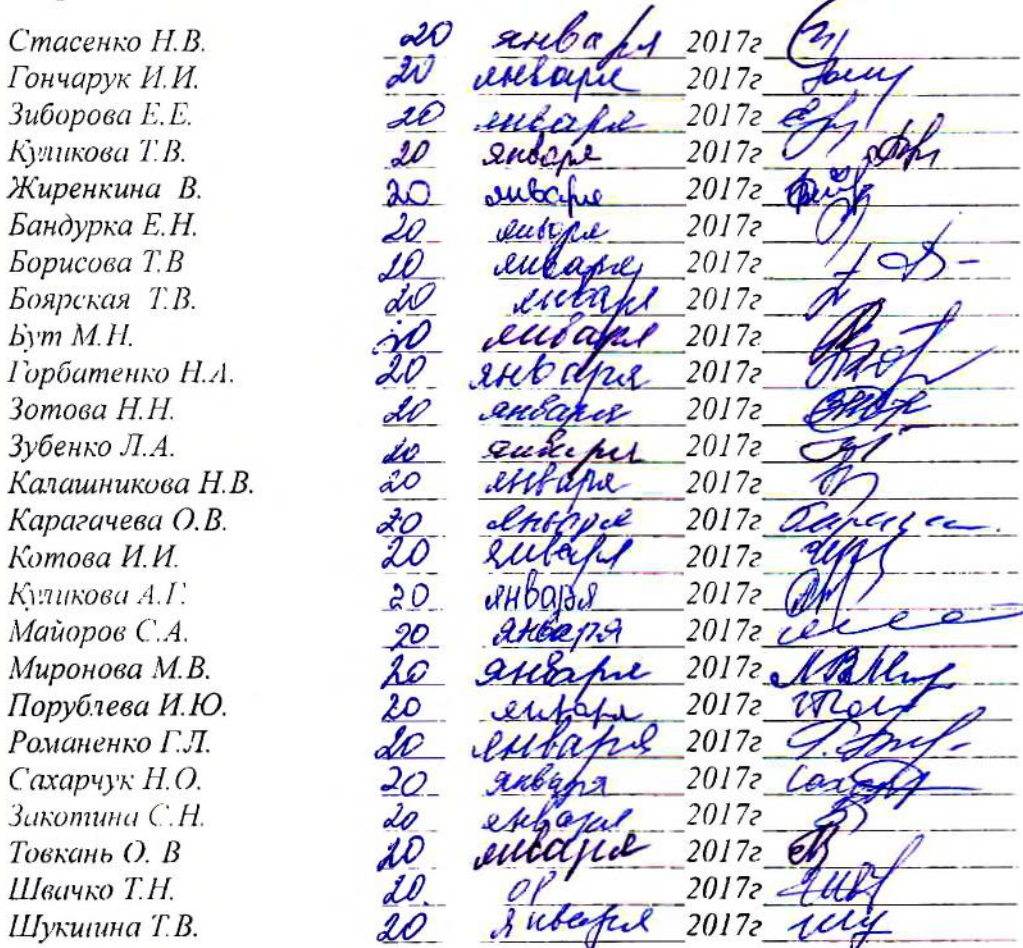 Стасенко Н.В. 20 января 2017г
Гончарук И.И. 20 января 2017г
Зиборова Е.Е. 20 января 2017г
Куликова Т.В. 20 января 2017г
Жиренкина В. 20 января 2017г
Бандурка Е.Н. 20 января 2017г
Борисова Т.В 20 января 2017г
Боярская Т.В. 20 января 2017г
Бут М.Н. 20 января 2017г
Горбатенко Н.А. 20 января 2017г
Зотова Н.Н. 20 января 2017г
Зубенко Л.А. 20 января 2017г
Калашникова Н.В. 20 января 2017г
Карагачева О.В. 20 января 2017г
Котова И.И. 20 января 2017г
Куликова А.Г. 20 января 2017г
Майоров С.А. 20 января 2017г
Миронова М.В. 20 января 2017г
Порублева И.Ю. 20 января 2017г
Романенко Г.Л. 20 января 2017г
Сахарчук Н.О. 20 января 2017г
Закотина С.Н. 20 января 2017г
Товкань О. В 20 января 2017г
Швачко Т.Н. 20. 2017г
Шукшина Т.В. 20 января 2017г